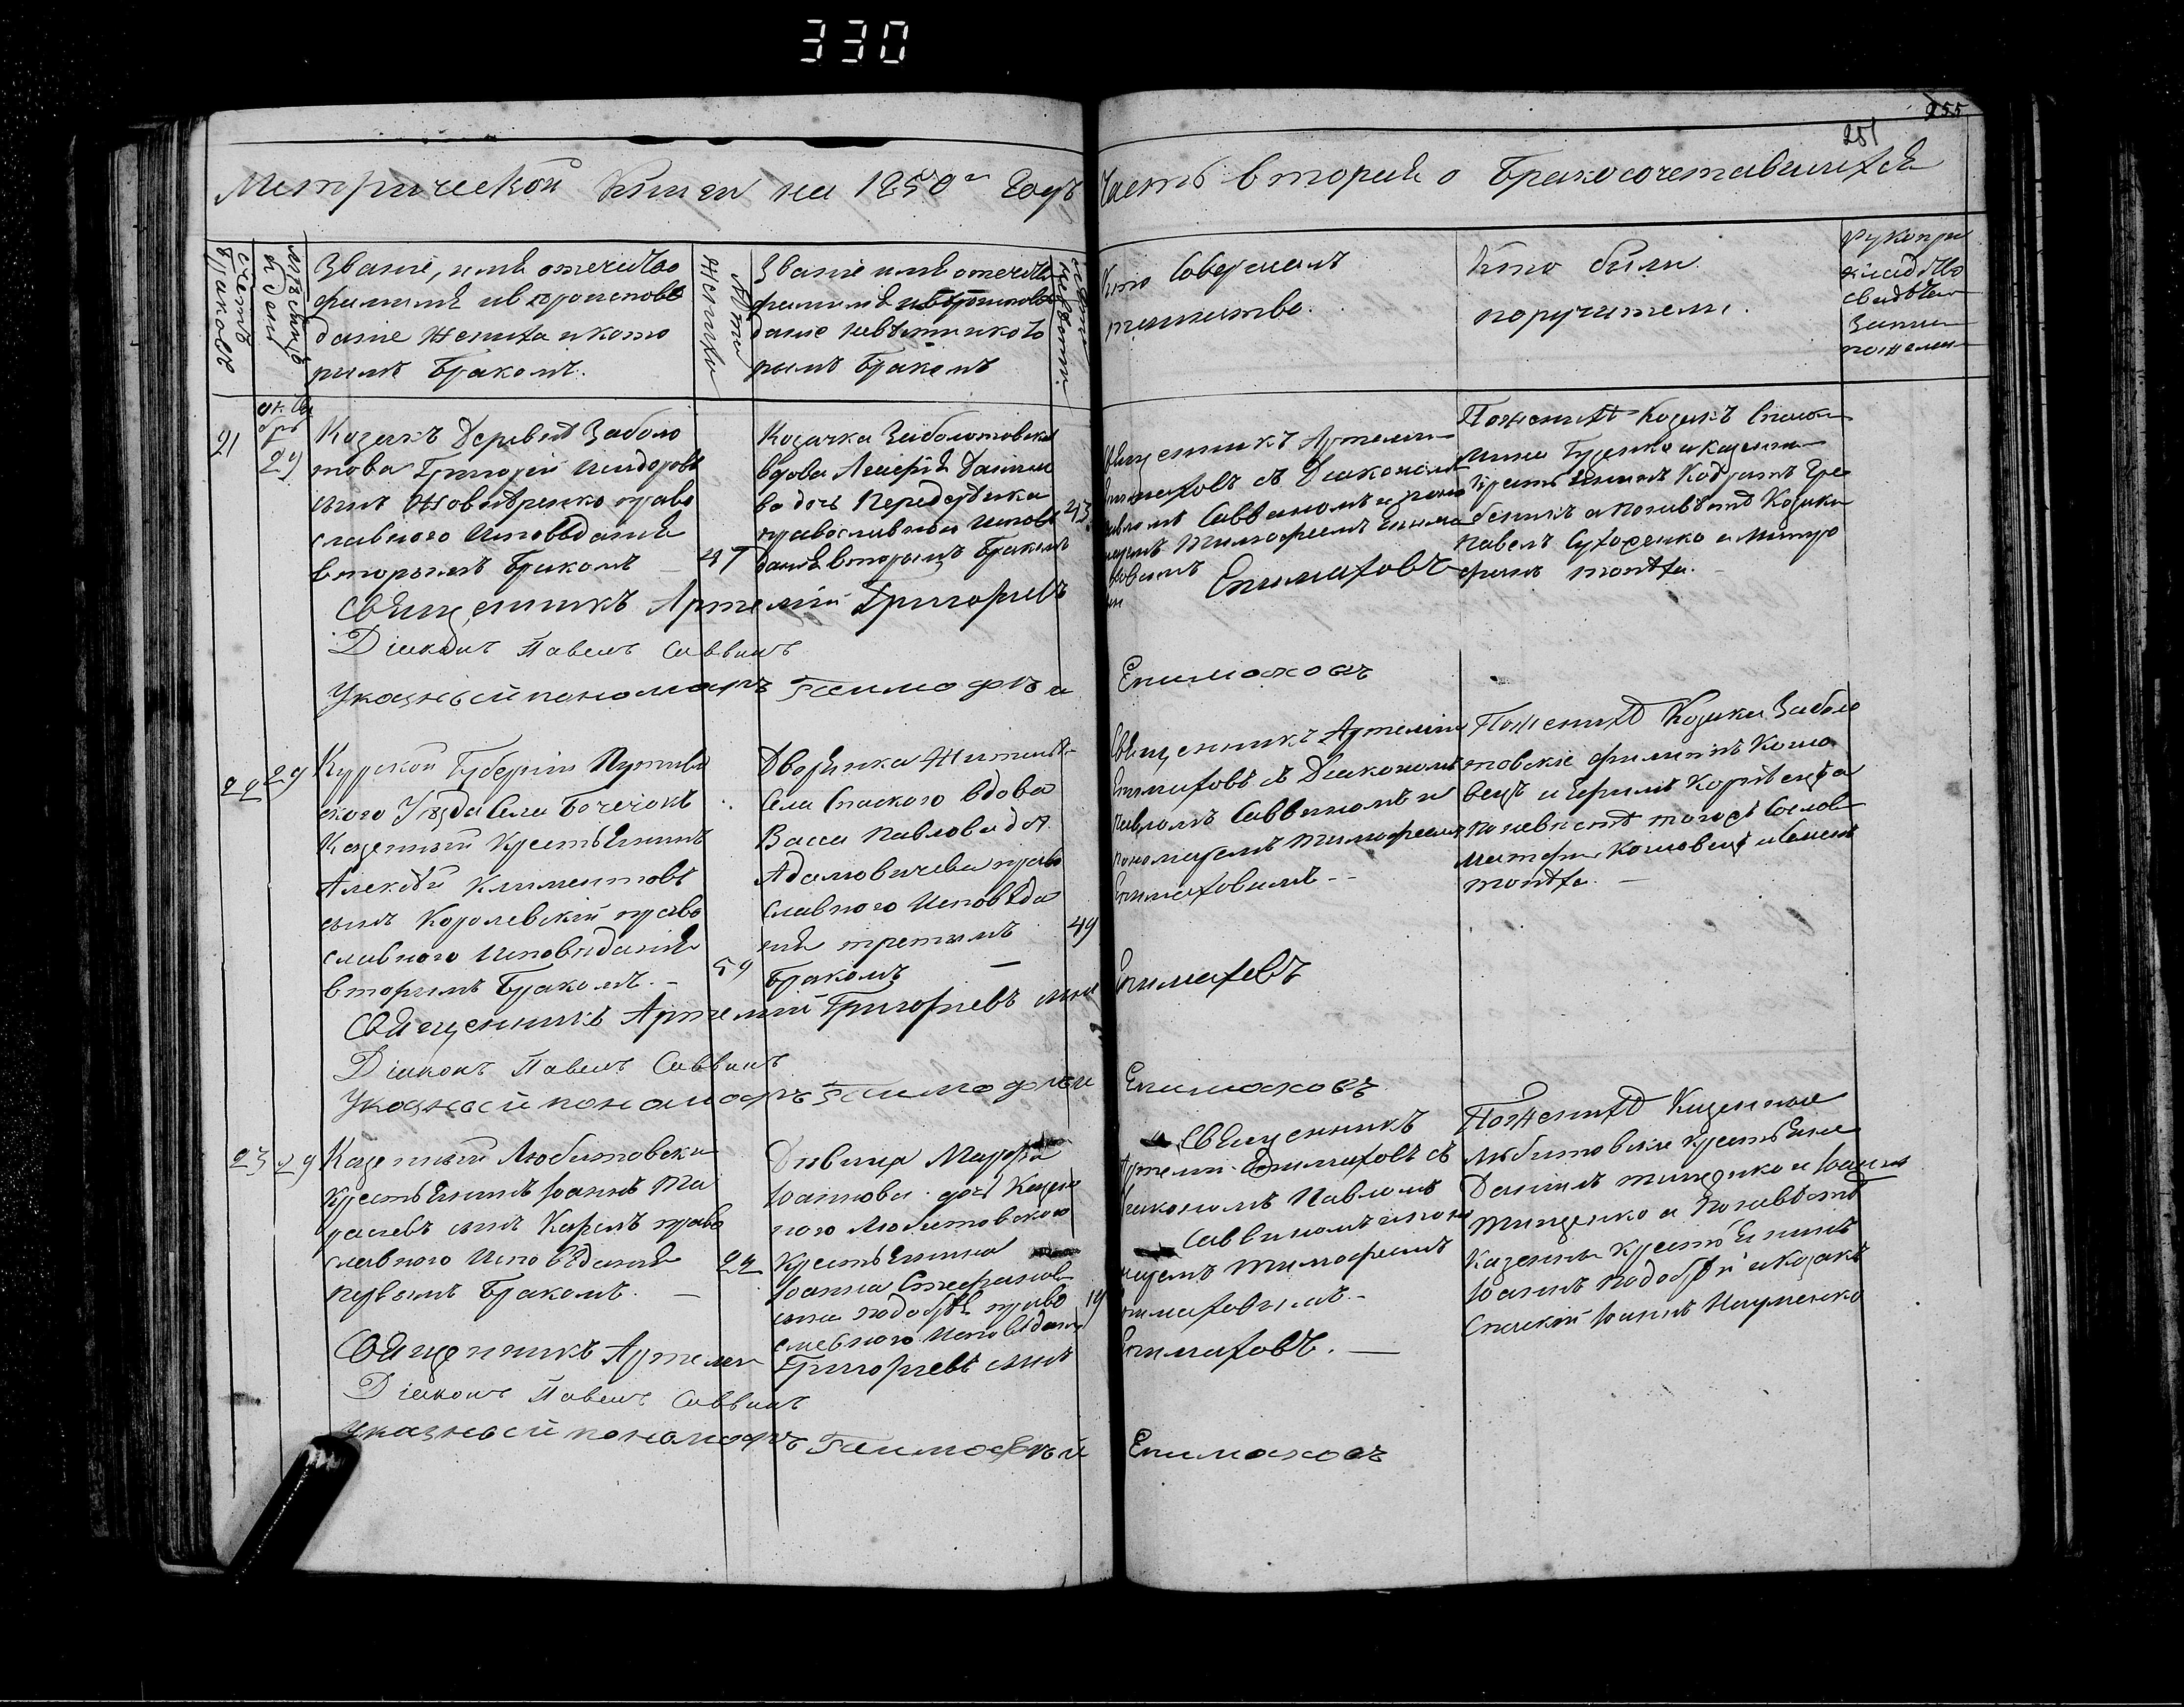 330
255
251
Метрической Книги на 1850й Годъ Часть вторая о Бракосочетавшихся
счетъ браковъ
мѣсяцъ и день
Званіе, имя отечество
фамилія и вѣроисповѣ
даніе Жениха и кото
рымъ Бракомъ.
лѣта жениха
Званіе имя отечество
фамилія и вѣроисповѣ
даніе невѣсты и кото
рымъ Бракомъ
лѣта невѣсты
Кто Совершалъ
таинство.
Кто были
поручители.
рукопри
кладство
свидѣтел
запи
по желан
21
29
Козакъ Деревни Заболо
това Григорій Исидоровъ
сынъ Жовтѣренко право
славного Исповѣданія
вторымъ Бракомъ 47
Козачка Заболотовская
вдова Данилова
дочь
православнаго Исповѣ
данія вторымъ Бракомъ
43
Священникъ Артемій
Епимаховъ съ Діакономъ
Павломъ Саввиномъ и поно
маремъ Тимофеемъ Епима
ховымъ
По женихѣ Козакъ
Гуденко и казенный
крестьянинъ
а по невѣстѣ Козаки
Павелъ Суходенко и Митро
фанъ тожъ.
Священникъ Артемій Григорьевъ Епимаховъ
Діаконъ Павелъ Саввинъ
Указный пономарь Тимофѣй Епимаховъ
22 29
Курской Губерніи Путивл
ского Уѣзда Села Бочечокъ
Казенный Крестьянинъ
Алексѣй Климентовъ
сынъ Королевскій право
славного Исповѣданія
вторымъ Бракомъ. 59
Дворянка Жительк
Села Спаского вдова
Васса Павлова доч
Адамовичева право
славного Исповѣда
нія третимъ 49
Бракомъ
Священникъ Артемій
Епимаховъ съ Діакономъ
Павломъ Саввиномъ и
пономаремъ Тимофеемъ
Епимаховымъ
По женихѣ Козаки Заболо
товскіе Филиппъ Кошо
вецъ и Ефимъ а
по невѣстѣ тогожъ Сослов
Кошовецъ и
тожъ.
Священникъ Артемій Григорьевъ сынъ Епимаховъ
Діаконъ Павелъ Саввинъ
Указный пономарь Тимофѣй Епимаховъ
23 29
Казенный Любитовски
Крестьянинъ Іоаннъ
сынъ Карпъ право
славного Исповѣданія 22
первымъ Бракомъ.
Дѣвица Марфа
Іоаннова дочь Казен
ного Любитовского
Крестьянина
Іоанна Стефанова
сына право
славного Исповѣданія 19
Священникъ
Артемій Епимаховъ съ
Діакономъ Павломъ
Саввиномъ и поно
маремъ Тимофеемъ
Епимаховымъ.
По женихѣ Казенные
Любитовскіе Крестьяне
Даніилъ Тищенко и Іоаннъ
Тищенко а по невѣстѣ
Казенны Крестьянинъ
Іоаннъ и Козакъ
Спаскій Іоаннъ Науменко
Священникъ Артемій Григорьевъ сынъ Епимаховъ.
Діаконъ Павелъ Саввинъ
Указный пономарь Тимофѣй Епимаховъ